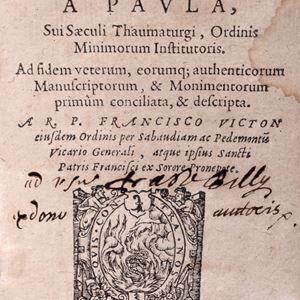 A PAVLA,
Sui Sæculi Thaumaturgi, Ordinis
Minimorum Institutoris.
Ad fidem veterum, eorumq; authenticorum
Manuscriptorum, & Monimentorum
primùm conciliata, & descripta.
A R. P. FRANCISCO VICTON
eiusdem Ordinis per Sabaudiam ac Pedemontiū
Vicario Generali, atque ipsius Sancti
Patris Francisci ex Sorore Pronepote.
ad usus Billy
ex dono authoris